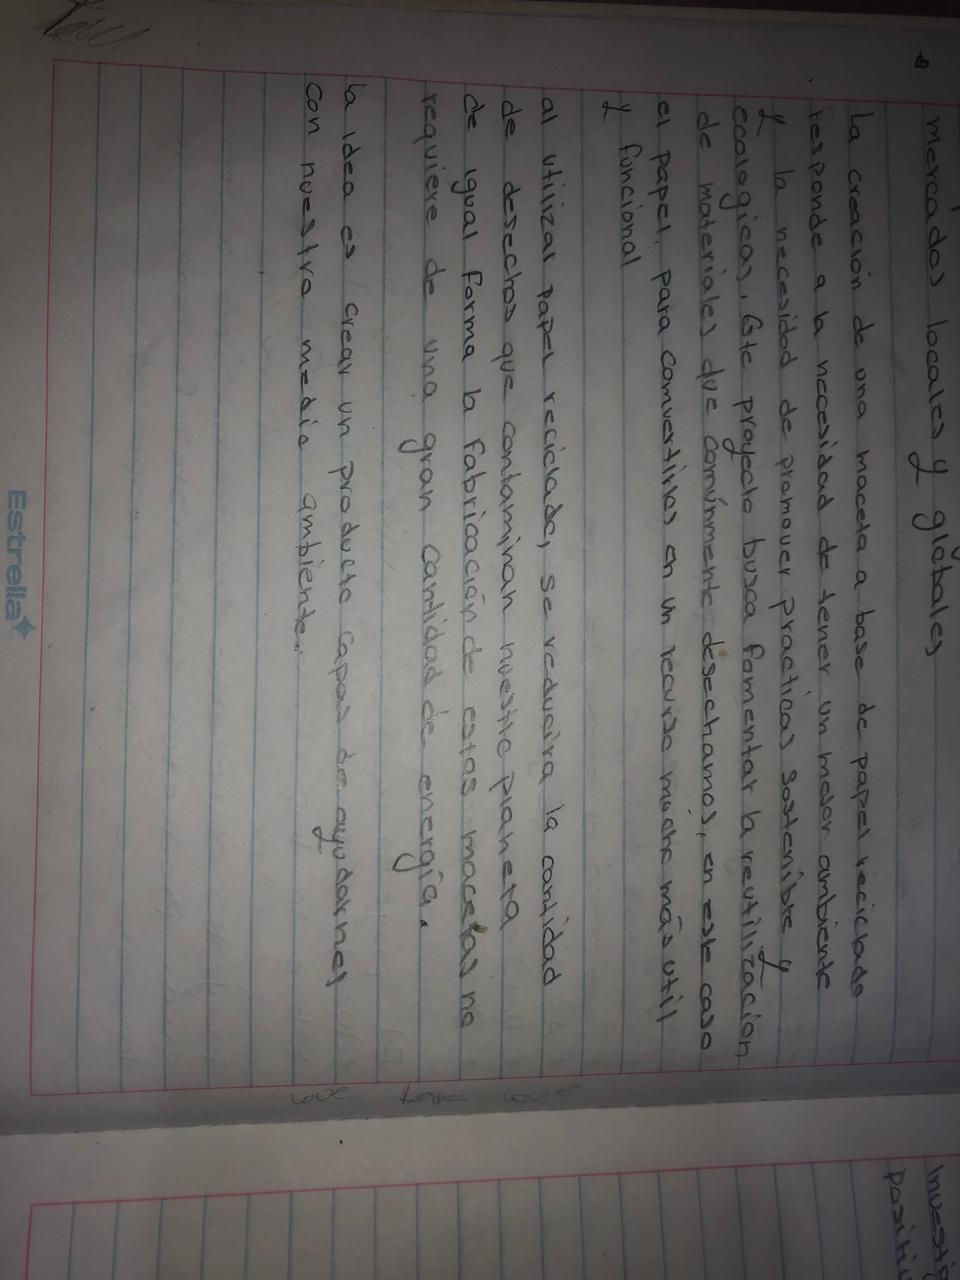 mercados locales y globales
La creación de una maceta a base de papel reciclado
responde a la necesidad de tener un mejor ambiente
y la necesidad de promover practicas sostenible y
ecologicas. Este proyecto busca fomentar la reutilización
de materiales que comúnmente desechamos, en este caso
el papel, para comvertirlos en un recurso mucho más util
y funcional
al utilizar papel reciclado, se reducira la cantidad
de desechos que contaminan nuestro planeta
de igual forma la fabricación de estas macetas no
requiere de una gran cantidad de energía.
la idea es crear un producto capas de ayudarnos
con nuestro medio ambiente.
Estrella
Investig
positi